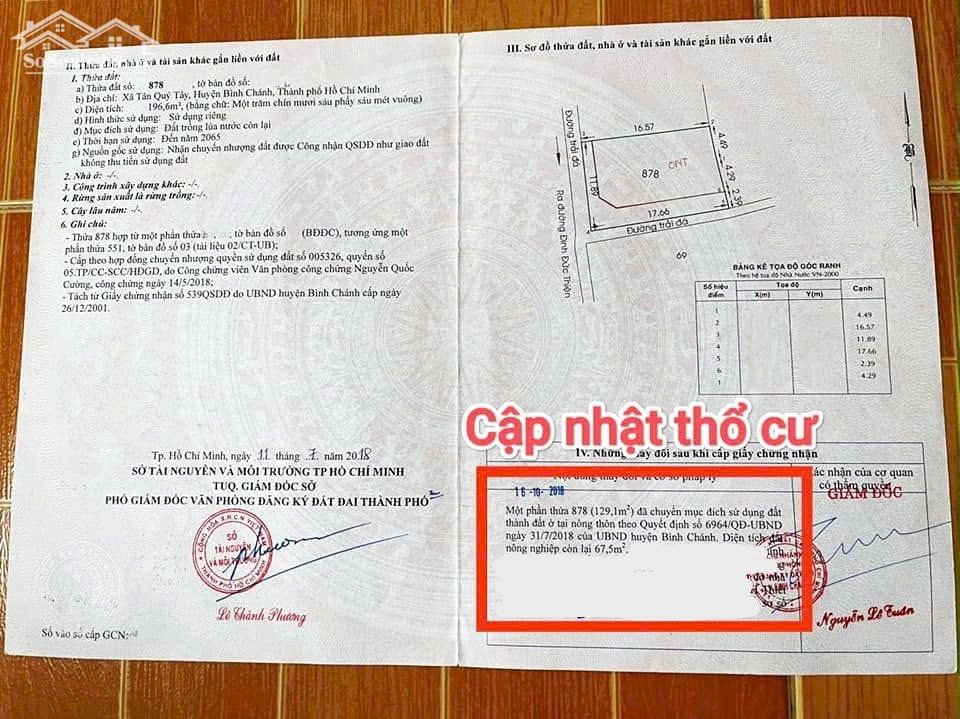 II. Thửa đất, nhà ở và tài sản khác gắn liền với đất
1. Thửa đất:
a) Thửa đất số: 878 , tờ bản đồ số:
b) Địa chỉ: Xã Tân Quý Tây, Huyện Bình Chánh, Thành phố Hồ Chí Minh
c) Diện tích: 196,6m², (bằng chữ: Một trăm chín mươi sáu phẩy sáu mét vuông)
d) Hình thức sử dụng: Sử dụng riêng
đ) Mục đích sử dụng: Đất trồng lúa nước còn lại
e) Thời hạn sử dụng: Đến năm 2065
g) Nguồn gốc sử dụng: Nhận chuyển nhượng đất được Công nhận QSDĐ như giao đất
không thu tiền sử dụng đất
2. Nhà ở: -/-.
3. Công trình xây dựng khác: -/-.
4. Rừng sản xuất là rừng trồng:-/-.
5. Cây lâu năm: -/-.
6. Ghi chú:
- Thửa 878 hợp từ một phần thửa , tờ bản đồ số (BĐĐC), tương ứng một
phần thửa 551, tờ bản đồ số 03 (tài liệu 02/CT-UB);
- Cấp theo hợp đồng chuyển nhượng quyền sử dụng đất số 005326, quyển số
05.TP/CC-SCC/HĐGD, do Công chứng viên Văn phòng công chứng Nguyễn Quốc
Cường, công chứng ngày 14/5/2018;
- Tách từ Giấy chứng nhận số 539QSDĐ do UBND huyện Bình Chánh cấp ngày
26/12/2001.
Tp. Hồ Chí Minh, ngày 11 tháng 7 năm 2018
SỞ TÀI NGUYÊN VÀ MÔI TRƯỜNG TP HỒ CHÍ MINH
TUQ. GIÁM ĐỐC SỞ
PHÓ GIÁM ĐỐC VĂN PHÒNG ĐĂNG KÝ ĐẤT ĐAI THÀNH PHỐ
CỘNG HÒA X.H.C.N VIỆT NAM
SỞ
TÀI NGUYÊN
VÀ MÔI TRƯỜNG
THÀNH PHỐ HỒ CHÍ MINH
Lê Thành Phương
Số vào sổ cấp GCN:
III. Sơ đồ thửa đất, nhà ở và tài sản khác gắn liền với đất
Đường trải đá
16.57
4.49
4.29
2.39
11.89
878
ONT
17.66
Đường trải đá
Ra đường Đinh Đức Thiện
69
BẢNG KÊ TỌA ĐỘ GÓC RANH
Theo hệ tọa độ Nhà Nước VN-2000
Số hiệu điểm Tọa độ Cạnh
X(m) Y(m)
1
4.49
2
16.57
3
11.89
4
17.66
5
2.39
6
4.29
1
Cập nhật thổ cư
IV. Những thay đổi sau khi cấp giấy chứng nhận
Nội dung thay đổi và cơ sở pháp lý
Xác nhận của cơ quan
có thẩm quyền
16-10-2018
GIÁM ĐỐC
Một phần thửa 878 (129,1m²) đã chuyển mục đích sử dụng đất
thành đất ở tại nông thôn theo Quyết định số 6964/QĐ-UBND
ngày 31/7/2018 của UBND huyện Bình Chánh. Diện tích đất
nông nghiệp còn lại 67,5m².
CHI NHÁNH
Nguyễn Lê Tuân